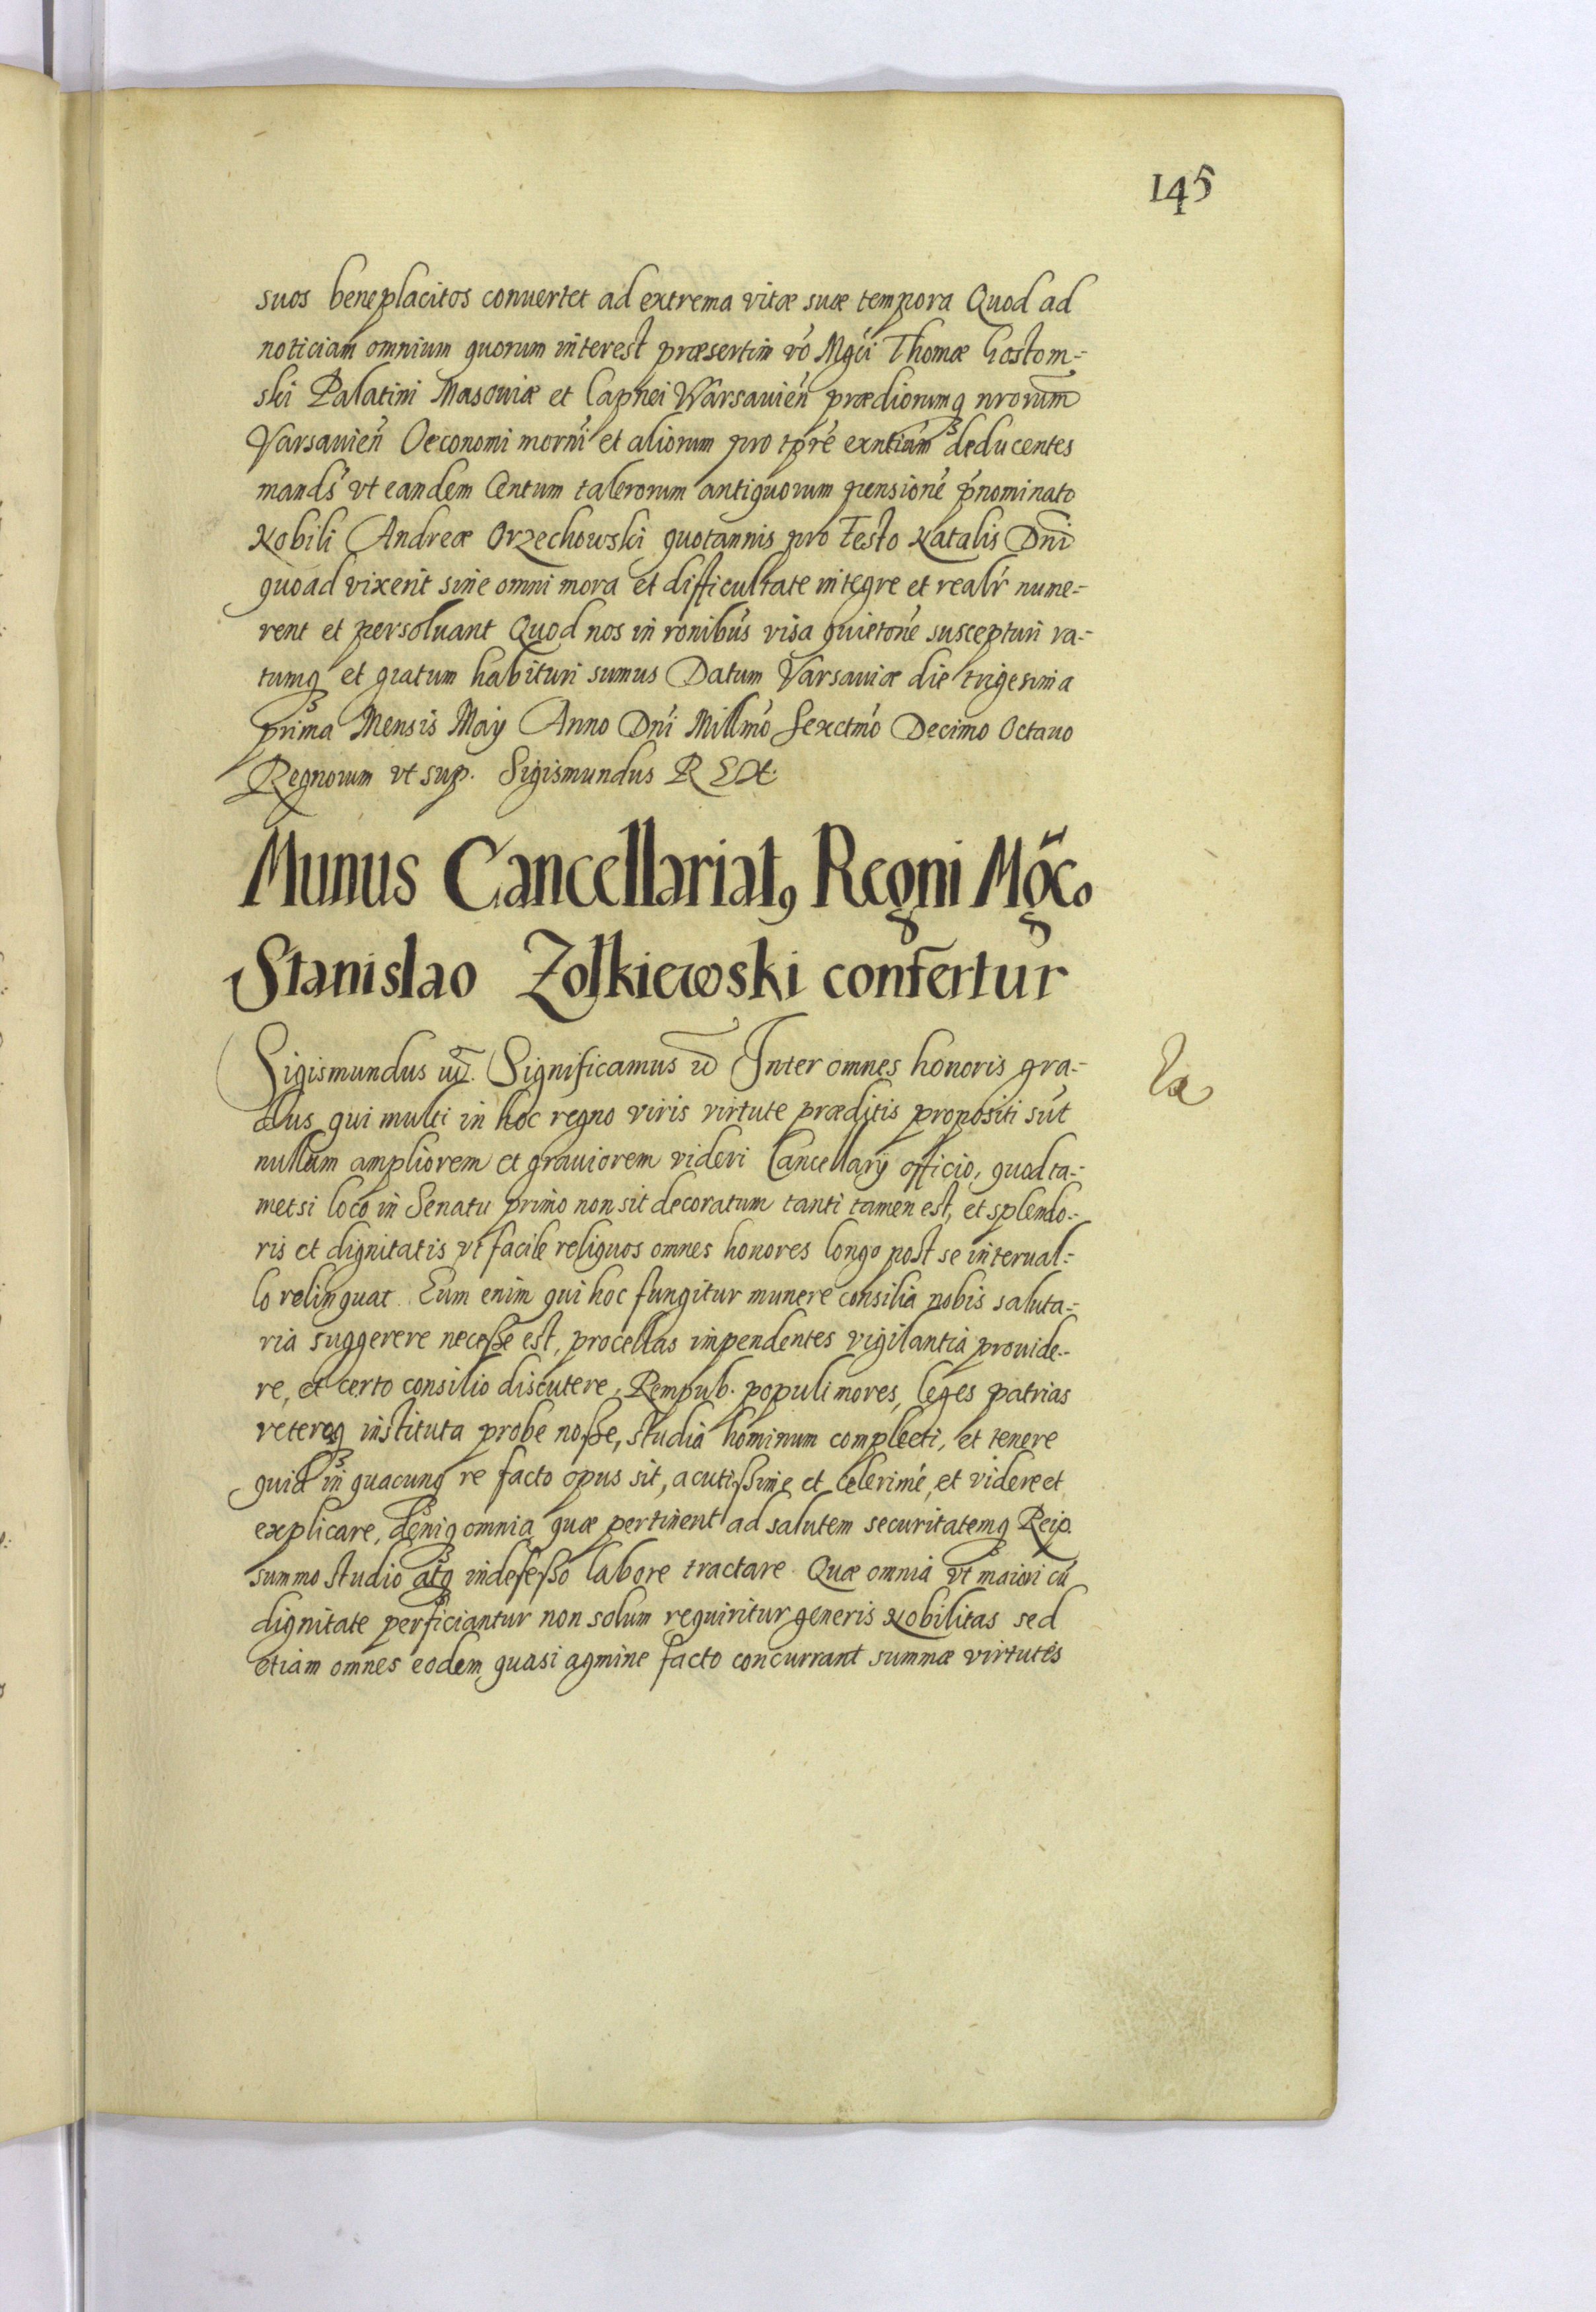 145
suos beneplacitos conuertet ad extrema vitæ suæ tempora Quod ad
noticiam omnium quorum interest præsertim vō Mgci Thomæ Gostom=
ski Palatini Masouiæ et Capnei Warsauień prædiorumq nrorum
Varsauień Oeconomi morni et aliorum pro tpre exntium deducentes
mands vt eandem Centum talerorum antiquorum pensione pnominato
Nobili Andreæ Orzechowski quotannis pro Festo Natalis Dni
quoad vixerit sine omni mora et difficultate integre et realr nume=
rent et persoluant Quod nos in ronibus visa quietone suscepturi ra=
tumq et gratum habituri sumus Datum Varsauiæ die trigesima
prima Mensis Maÿ Anno Dni Millmo Sexctmo Decimo Octauo
Regnorum vt sup. Sigismundus REX.
Munus Cancellariatꝰ Regni Mgco
Stanislao Zolkiewski confertur
Sigismundus Significamus Inter omnes honoris gra=
dus qui multi in hoc regno viris virtute præditis propositi sūt
nullum ampliorem et grauiorem videri Cancellarÿ officio, quod ta=
metsi loco in Senatu primo non sit decoratum tanti tamen est, et splendo=
ris et dignitatis vt facile reliquos omnes honores longo post se interual=
lo relinquat. Eum enim qui hoc fungitur munere consilia nobis saluta=
ria suggerere necesse est, procellas impendentes vigilantia prouide=
re, et certo consilio discutere, Rempub. populi mores, leges patrias
veteraq instituta probe nosse, studia hominum complecti, et tenere
quid in quacunq re facto opus sit, acutissime et celerime, et videre et
explicare, deniq omnia quæ pertinent ad salutem securitatemq Reip.
summo studio atq indefesso labore tractare Quæ omnia vt maiori cū
dignitate perficiantur non solum requiritur generis Nobilitas sed
etiam omnes eodem quasi agmine facto concurrant summæ virtutes